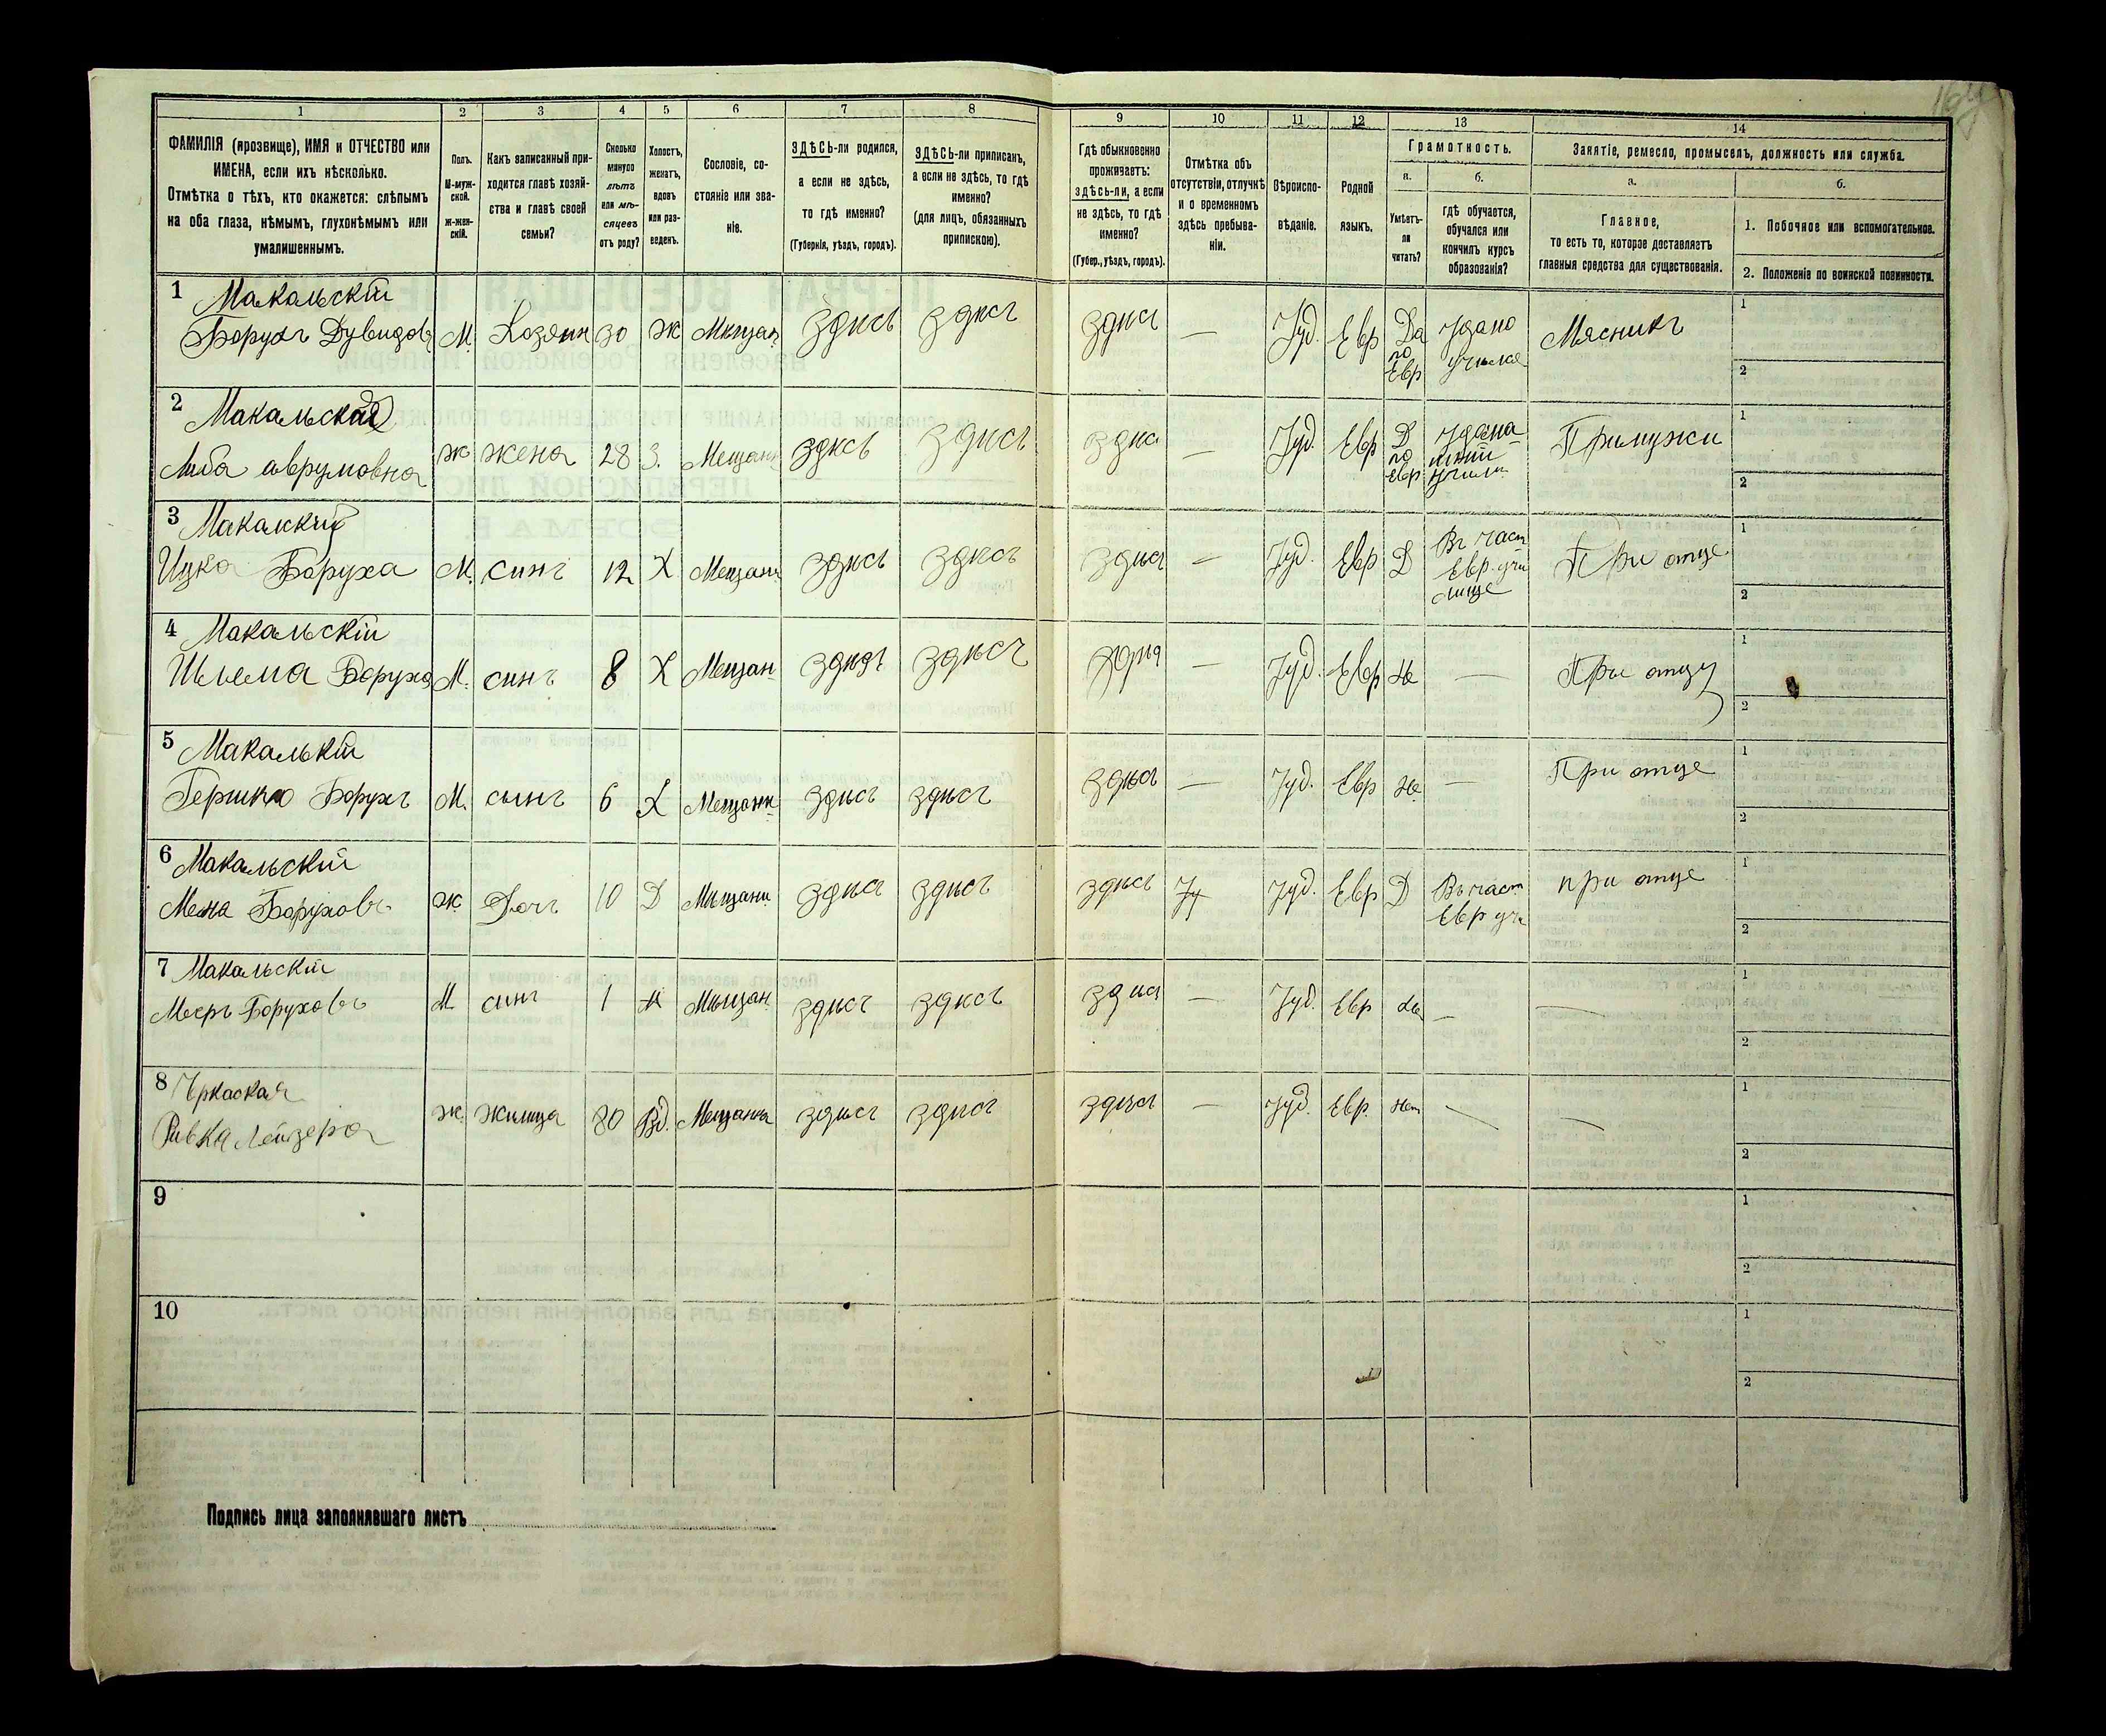 164
1 2 3 4 5 6 7 8 9 10 11 12 13 14
ФАМИЛІЯ (прозвище), ИМЯ и ОТЧЕСТВО или
ИМЕНА, если ихъ нѣсколько.
Отмѣтка о тѣхъ, кто окажется: слѣпымъ
на оба глаза, нѣмымъ, глухонѣмымъ или
умалишеннымъ.
Полъ.
М-муж-
ской.
ж-жен-
скій.
Какъ записанный при-
ходится главѣ хозяй-
ства и главѣ своей
семьи?
Сколько
минуло
лѣтъ
или мѣ-
сяцевъ
отъ роду?
Холостъ,
женатъ,
вдовъ
или раз-
веденъ.
Сословіе, со-
стояніе или зва-
ніе.
ЗДѢСЬ-ли родился,
а если не здѣсь,
то гдѣ именно?
(Губернія, уѣздъ, городъ).
ЗДѢСЬ-ли приписанъ,
а если не здѣсь, то гдѣ
именно?
(для лицъ, обязанныхъ
припискою).
Гдѣ обыкновенно
проживаетъ:
здѣсь-ли, а если
не здѣсь, то гдѣ
именно?
(Губер., уѣздъ, городъ).
Отмѣтка объ
отсутствіи, отлучкѣ
и о временномъ
здѣсь пребыва-
ніи.
Вѣроиспо-
вѣданіе.
Родной
языкъ.
Грамотность.
а.
Умѣетъ-
ли
читать?
б.
гдѣ обучается,
обучался или
кончилъ курсъ
образованія?
Занятіе, ремесло, промыселъ, должность или служба.
а.
Главное,
то есть то, которое доставляетъ
главныя средства для существованія.
б.
1. Побочное или вспомогательное.
2. Положеніе по воинской повинности.
1 Макальскій
Борухъ Дувидовъ М. Хозяин 30 Ж Мещан здись здись здись — Іуд. Евр Да по Евр Мясникъ 1 2
2 Макальская
Либа аврумовна ж жена 28 З. Мещан здись здись здис — Іуд. Евр Д по Евр Примужи 1 2
3
Ицко Боруха М. синъ 12 Х Мещан здись здись здися — Іуд. Евр Д Въ част Евр. учи лище При отце 1 2
4 Макальскій
Шлема Борухо М. синъ 8 Х Мещан здись здись — Іуд. Евр Не — При отцу 1 2
5 Макалькій
Гершко Борухъ М. сынъ 6 Х Мещани здись здись здись — Іуд. Евр Не — При отце 1 2
6 Макальскій
Борухов ж. Дочь 10 Д Мещани здись здись здись Іуд. Евр Д Въ част Евр учи при отце 1 2
7 Макальскій
Мееръ Боруховъ М синъ 1 Х Мещан здись здись здися — Іуд. Евр Не — — 1 2
8 Чркаская
Ривка Лейзера ж. жилица 80 Вд. Мещанка здись здись здись — Іуд. Евр. Нет — — 1 2
9 1 2
10 1 2
Подпись лица заполнявшаго листъ